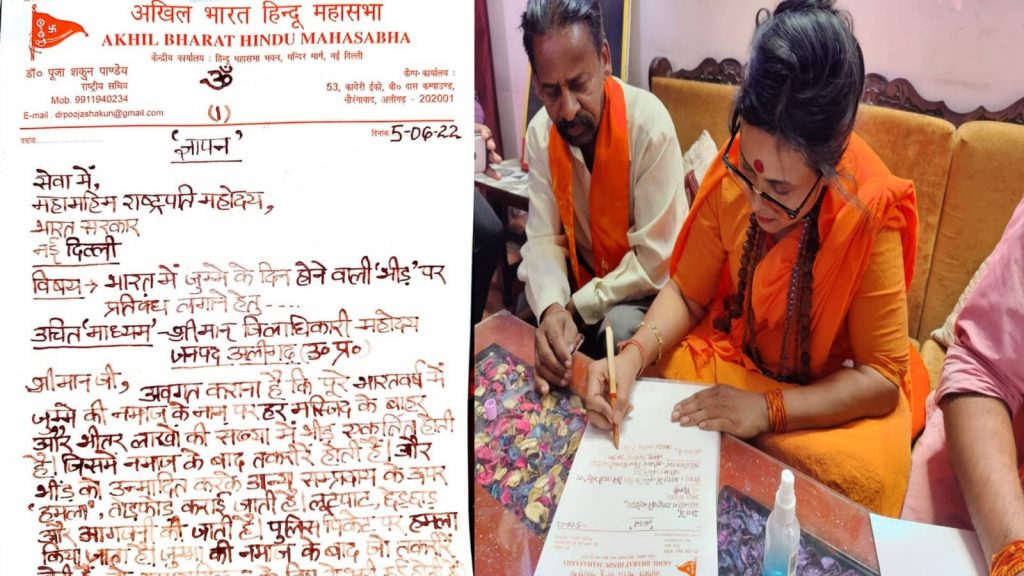 अखिल भारत हिन्दू महासभा
AKHIL BHARAT HINDU MAHASABHA
केन्द्रीय कार्यालय : हिन्दू महासभा भवन, मन्दिर मार्ग, नई दिल्ली
डॉ० पूजा शकुन पाण्डेय
राष्ट्रीय सचिव
Mob. 9911940234
E-mail : drpoojashakun@gmail.com
ॐ
(1)
कैम्प-कार्यालय :
53, कावेरी ईको, बी० दास कम्पाउण्ड,
नौरंगाबाद, अलीगढ़ - 202001
पत्रांक
दिनांक 5-06-22
'ज्ञापन'
सेवा में,
महामहिम राष्ट्रपति महोदय,
भारत सरकार
नई दिल्ली
विषय → भारत में जुम्मे के दिन होने वाली 'भीड़' पर
प्रतिबंध लगाने हेतु ----
उचित 'माध्यम' - श्रीमान् जिलाधिकारी महोदय
जनपद अलीगढ़ (उ० प्र०)
श्रीमान जी, अवगत कराना है कि पूरे भारतवर्ष में
जुम्मे की नमाज के नाम पर हर मस्जिद के बाहर
और भीतर लाखों की संख्या में भीड़ एकत्रित होती
है। जिसमें नमाज के बाद तकरीरें होती हैं। और
भीड़ को उन्मादित करके अन्य सम्प्रदाय के ऊपर
'हमला', तोड़फोड़ कराई जाती है। लूटपाट,
और आगजनी की जाती है। पुलिस पिकेट पर हमला
किया जाता है। जुम्मा की नमाज के बाद जो तकरीरें
AKHIL BHARAT HINDU MAHASABHA